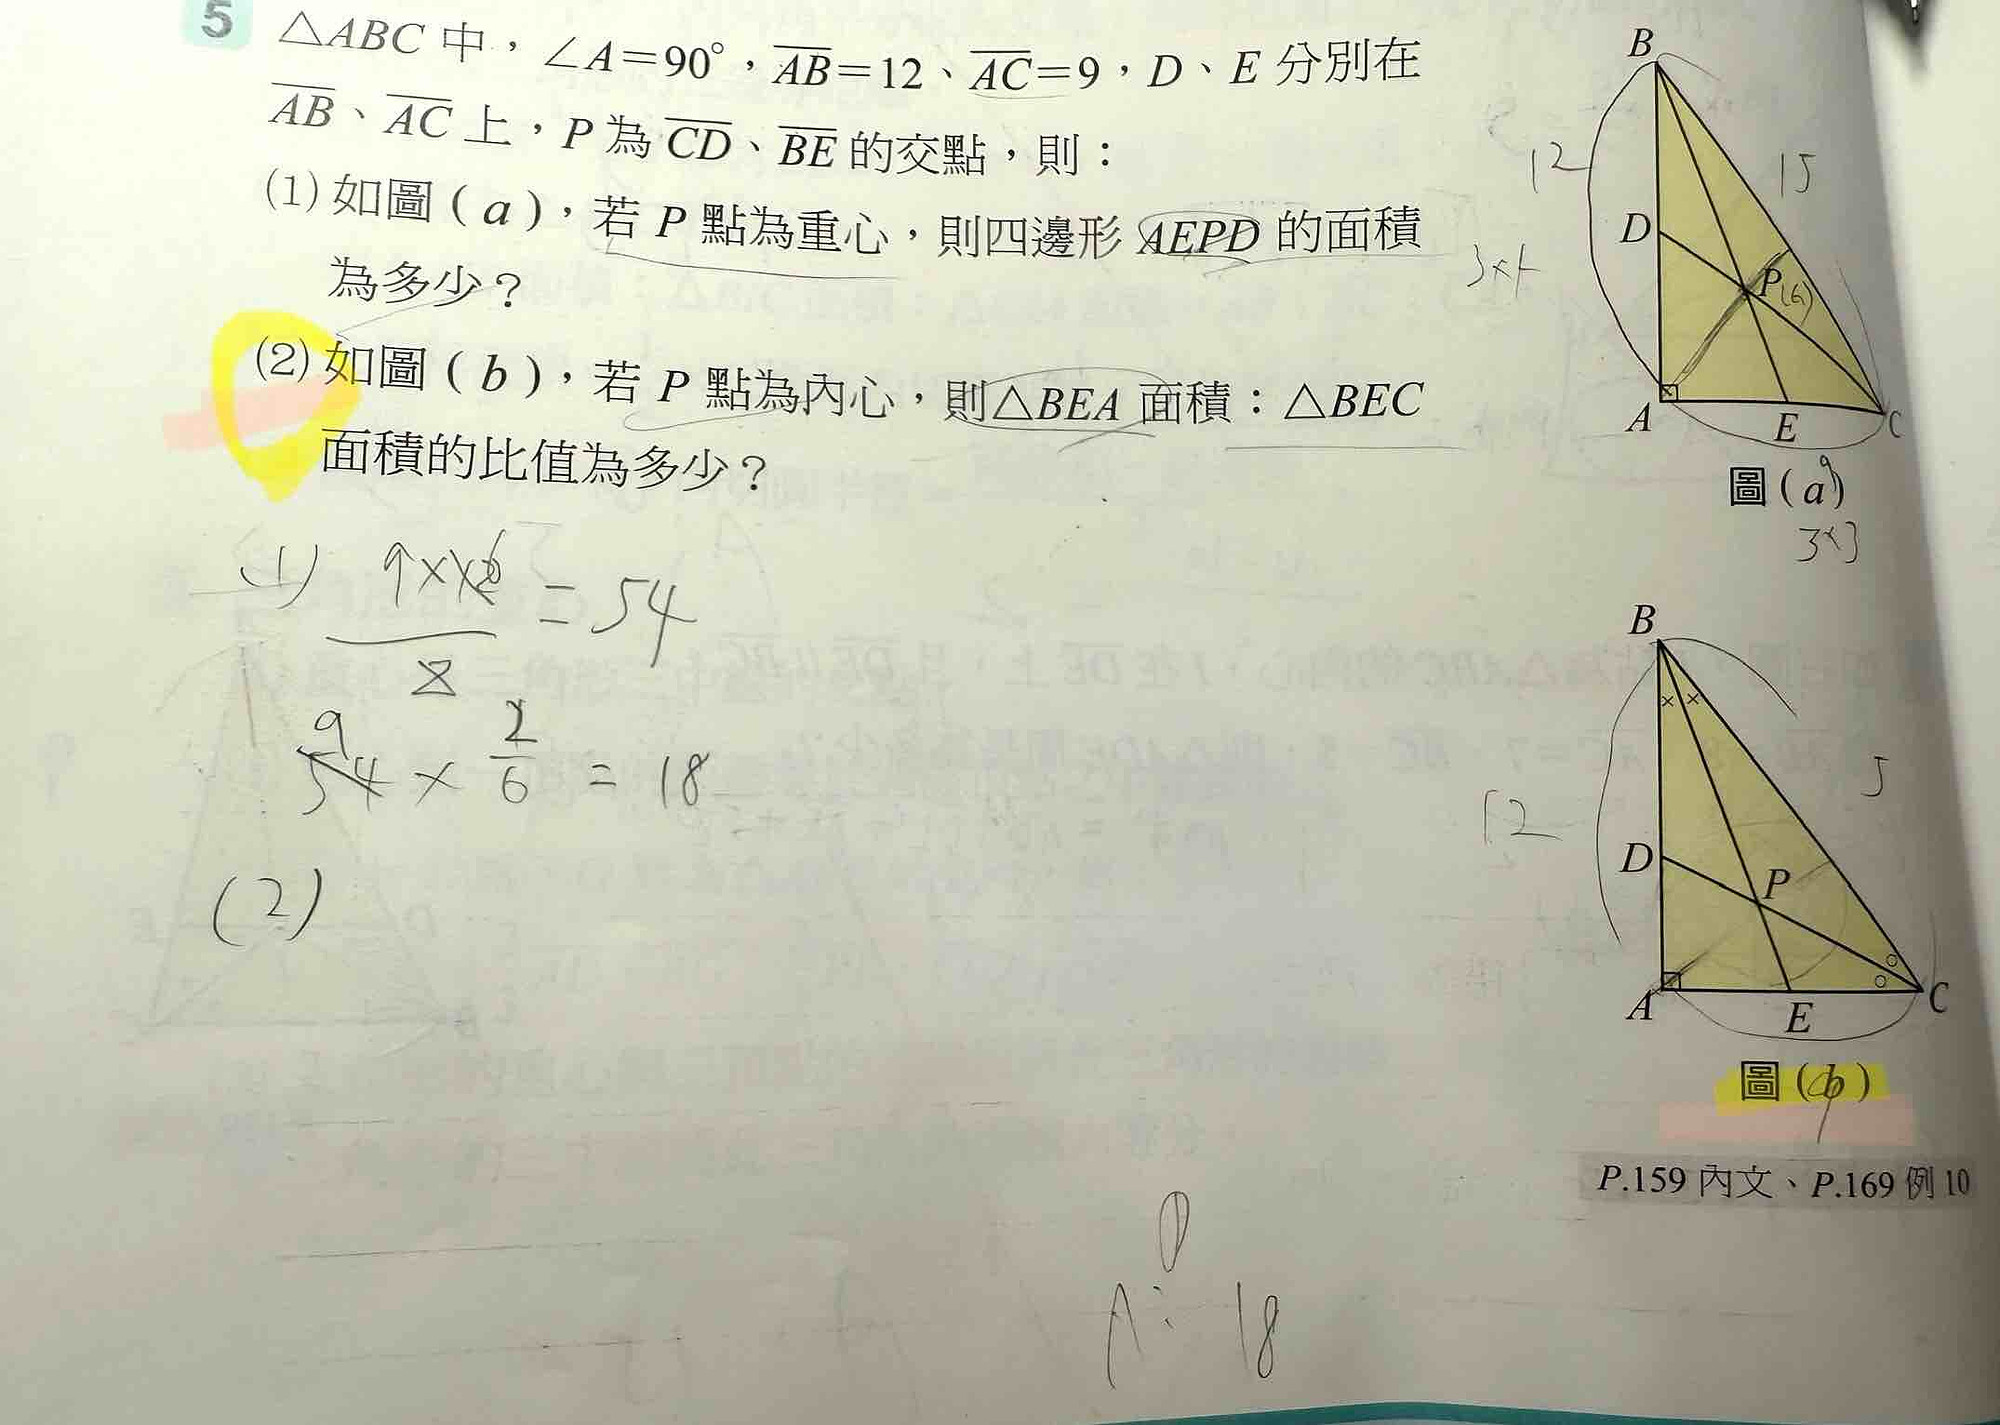 5 △ABC 中，∠A=90°，AB=12、AC=9，D、E 分別在
AB、AC 上，P 為 CD、BE 的交點，則：
(1) 如圖 ( a )，若 P 點為重心，則四邊形 AEPD 的面積
為多少？
(2) 如圖 ( b )，若 P 點為內心，則△BEA 面積：△BEC
面積的比值為多少？
B
12
15
D
3×4
P(6)
A
E
C
9
圖 ( a )
3×3
(1) 9×12 6 / 2 = 54
9 54 × 2/6 = 18
(2)
B
× ×
5
12
D
P
A
E
C
圖 ( b )
9
P.159 內文、P.169 例 10
A: 18